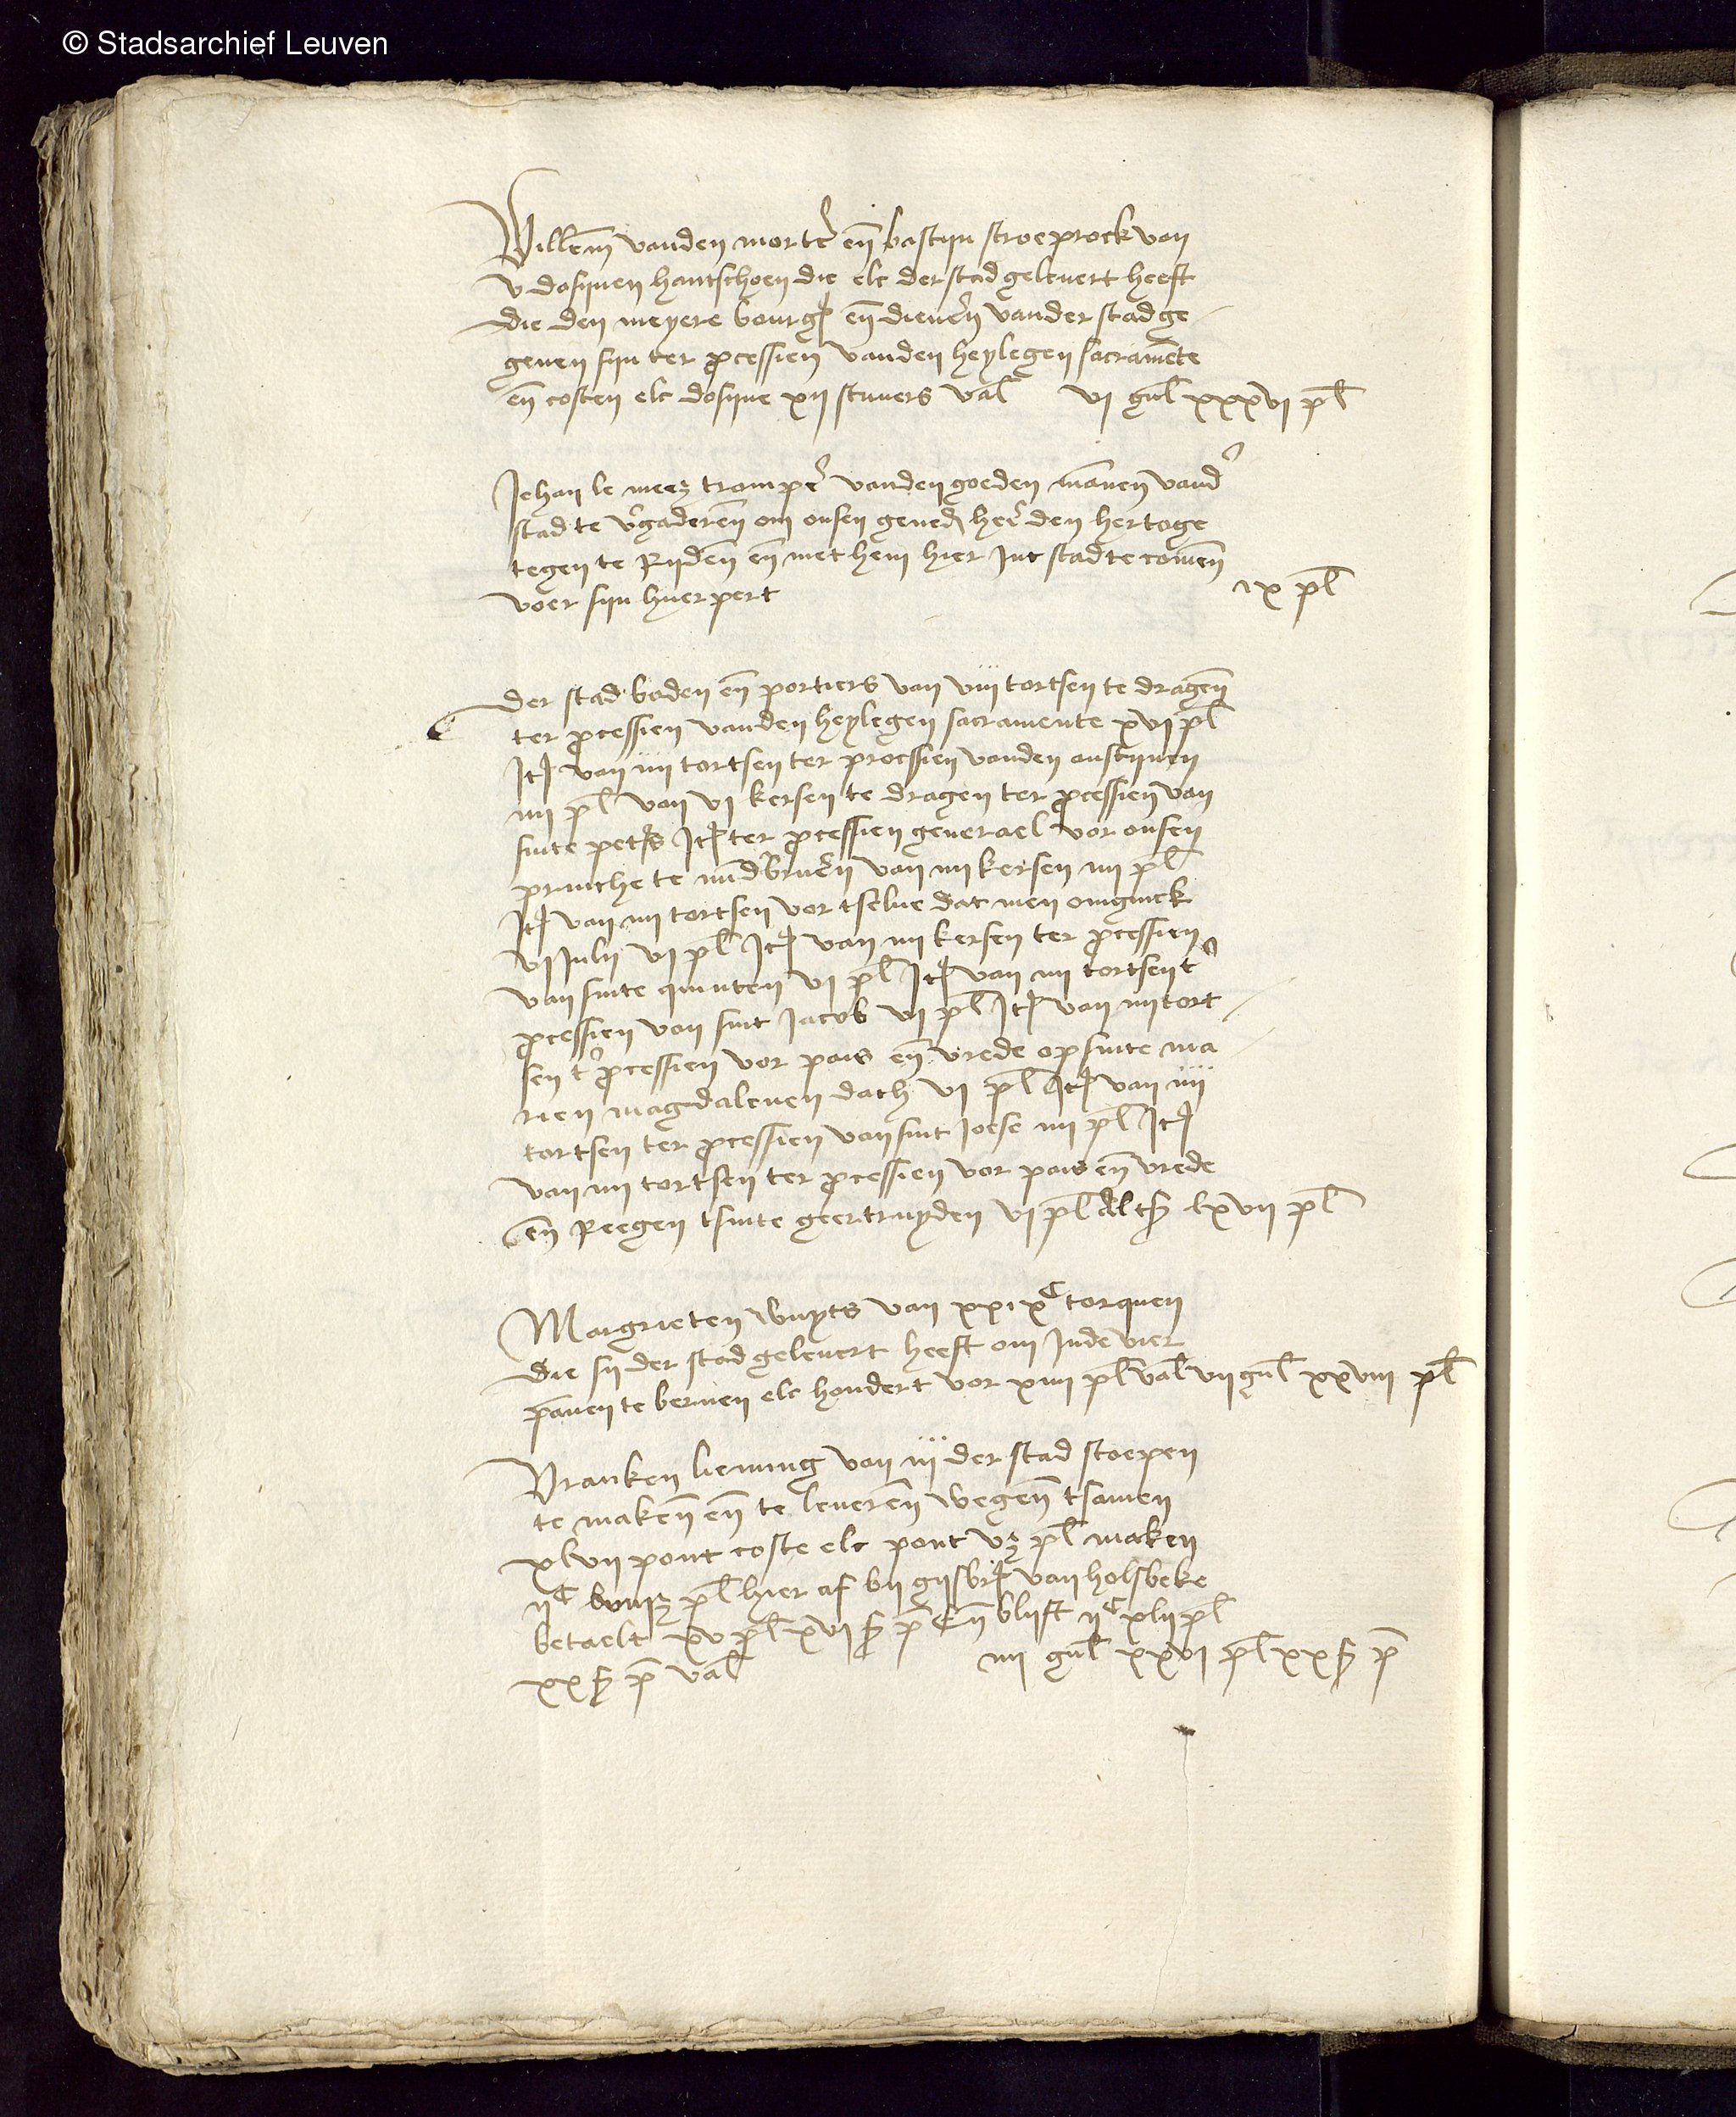 © Stadsarchief Leuven
Willem vanden morter en bastijn stroeprock van
v dosijnen hantschoen die elc der stad gelevert heeft
die den meyere bourg en dieneren vander stad ge
geven sijn ter processien vanden heylegen sacramente
en costen elc dosijne xij stuvers val vj gul xxxvj pl
Jehan le meez tromper vanden goeden mannen vand
stad te vgaderen om onsen gened her den hertoge
tegen te Rijden en met hem hier int stad te comen
voer sijn huerpert ix pl
Der stad boden en portiers van viij tortsen te dragen
ter processien vanden heylegen sacramente xvj pl
Itm van iiij tortsen ter processien vanden austijnen
iiij pl van vj kersen te dragen ter processien van
sinte peters Itm ter processien generael vor onsen
prinche te van iiij kersen iiij pl
Itm van iiij tortsen vor tselve dat men omginck
vj Julij vj pl Itm van iiij kersen ter processien
van sinte quinten vj pl Itm van iiij tortsen t
processien van sint Jacob vj pl Itm van iiij tort
sen t processien vor pais en vrede op sinte ma
rien magdalenen dach vj pl Itm van iiij
tortsen ter processien van sint Joese iiij pl Itm
van iiij tortsen ter processien vor pais en vrede
en Reegen tsinte geertruyden vj pl Altz lxvij pl
Margrieten wuyts van xxix C torquen
die sij der stad gelevert heeft om inde vier
pannen te bernen elc hondert vor xiiij pl val vij gul xxviij pl
Vranken lieming van iij der stad stoepen
te maken en te leveren wegen tsamen
xlvij pont coste elc pont vz pl maken
ij C lviijz pl hier af bij gijsbr van holsbeke
betaelt xv pl xvj s p En blijft ij C xlij pl
xx s p val iiij gul xxvj pl xx s p